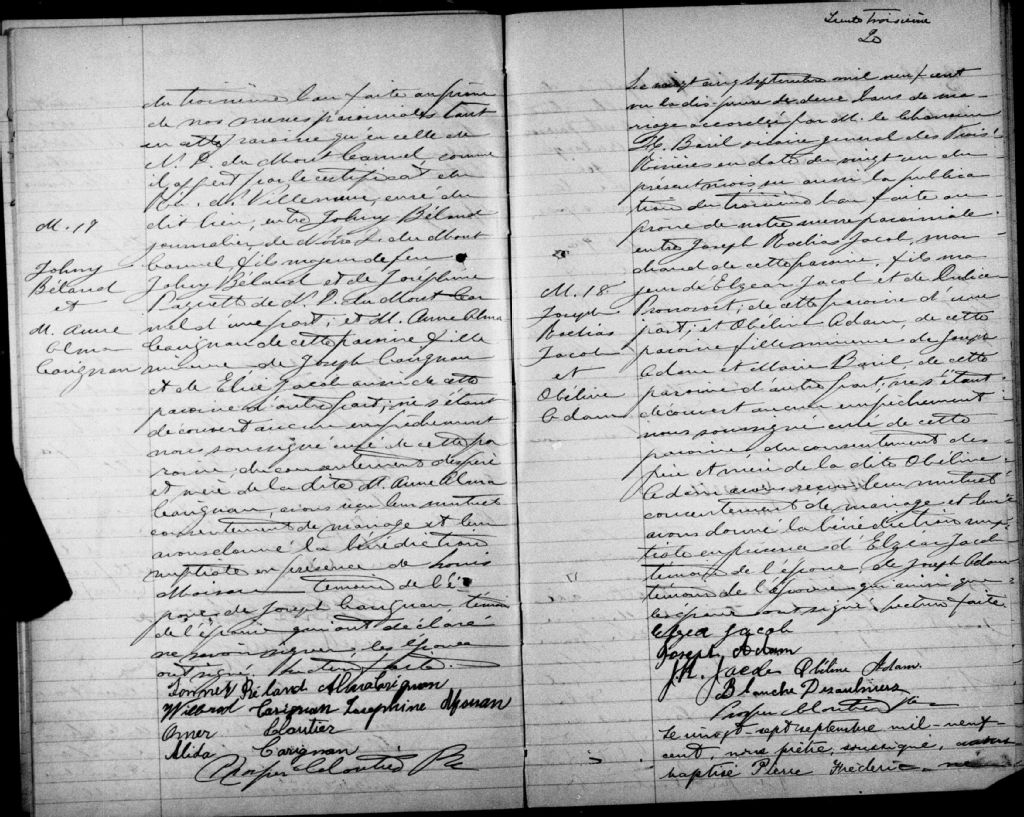 du troisième ban faite au prône
de nos messes paroissiales tant
en cette paroisse qu'en celle de
N. D. du Mont Carmel comme
il appert par le certificat du
Rév. Mr Villemure, curé du
dit lieu, entre Johny Béland
journalier de Notre D. du Mont
Carmel fils majeur de feu
Johny Béland et de Joséphine
de N. D. du Mont Car
mel d'une part; et M. Anne Alma
Carignan de cette paroisse fille
mineure de Joseph Carignan
et de Elise Jacob aussi de cette
paroisse d'autre part; ne s'étant
découvert aucun empêchement
nous soussigné curé de cette pa
roisse du consentement des père
et mère de la dite M. Anne Alma
Carignan, avons reçu leur mutuel
consentement de mariage et leur
avons donné la bénédiction
nuptiale en présence de Louis
témoin de l'é-
poux, de Joseph Carignan, témoin
de l'épouse qui ont déclaré
ne savoir signer, les époux
ont signé lecture faite.
Béland Alma Carignan
Wilbrod Carignan Josephine
Omer Cloutier
Alida Carignan
Prosper Cloutier Ptre
M. 17
Johny
Béland
et
M. Anne
Alma
Carignan
20
Le vingt cinq Septembre mil neuf cent
vu la dispense de deux bans de ma-
riage accordée par M. le Chanoine
H. Baril vicaire général des Trois
Rivières en date du vingt un du
présent mois vu aussi la publica
tion du troisième ban faite au
prône de notre messe paroissiale
entre Joseph Rochias Jacob, mar
chand de cette paroisse, fils ma
jeur de Elzéar Jacob et de
Pronovost, de cette paroisse d'une
part; et Obéline Adam, de cette
paroisse fille mineure de Joseph
Adam et Marie Baril de cette
paroisse d'autre part; ne s'étant
découvert aucun empêchement
nous soussigné curé de cette
paroisse du consentement des
père et mère de la dite Obéline
Adam avons reçu leur mutuel
consentement de mariage et leur
avons donné la bénédiction nup-
tiale en présence d'Elzéar Jacob
témoin de l'époux de Joseph Adam
témoin de l'épouse qui ainsi que
les époux ont signé lecture faite
Elzea Jacob
Joseph Adam
J. R. Jacob Obéline Adam.
Blanche Desaulniers
Prosper Cloutier Ptre
Le vingt-sept septembre mil-neuf
cent, nous prêtre, soussigné, avons
baptisé Pierre Frédéric
M. 18
Joseph
Rochias
Jacob
et
Obéline
Adam